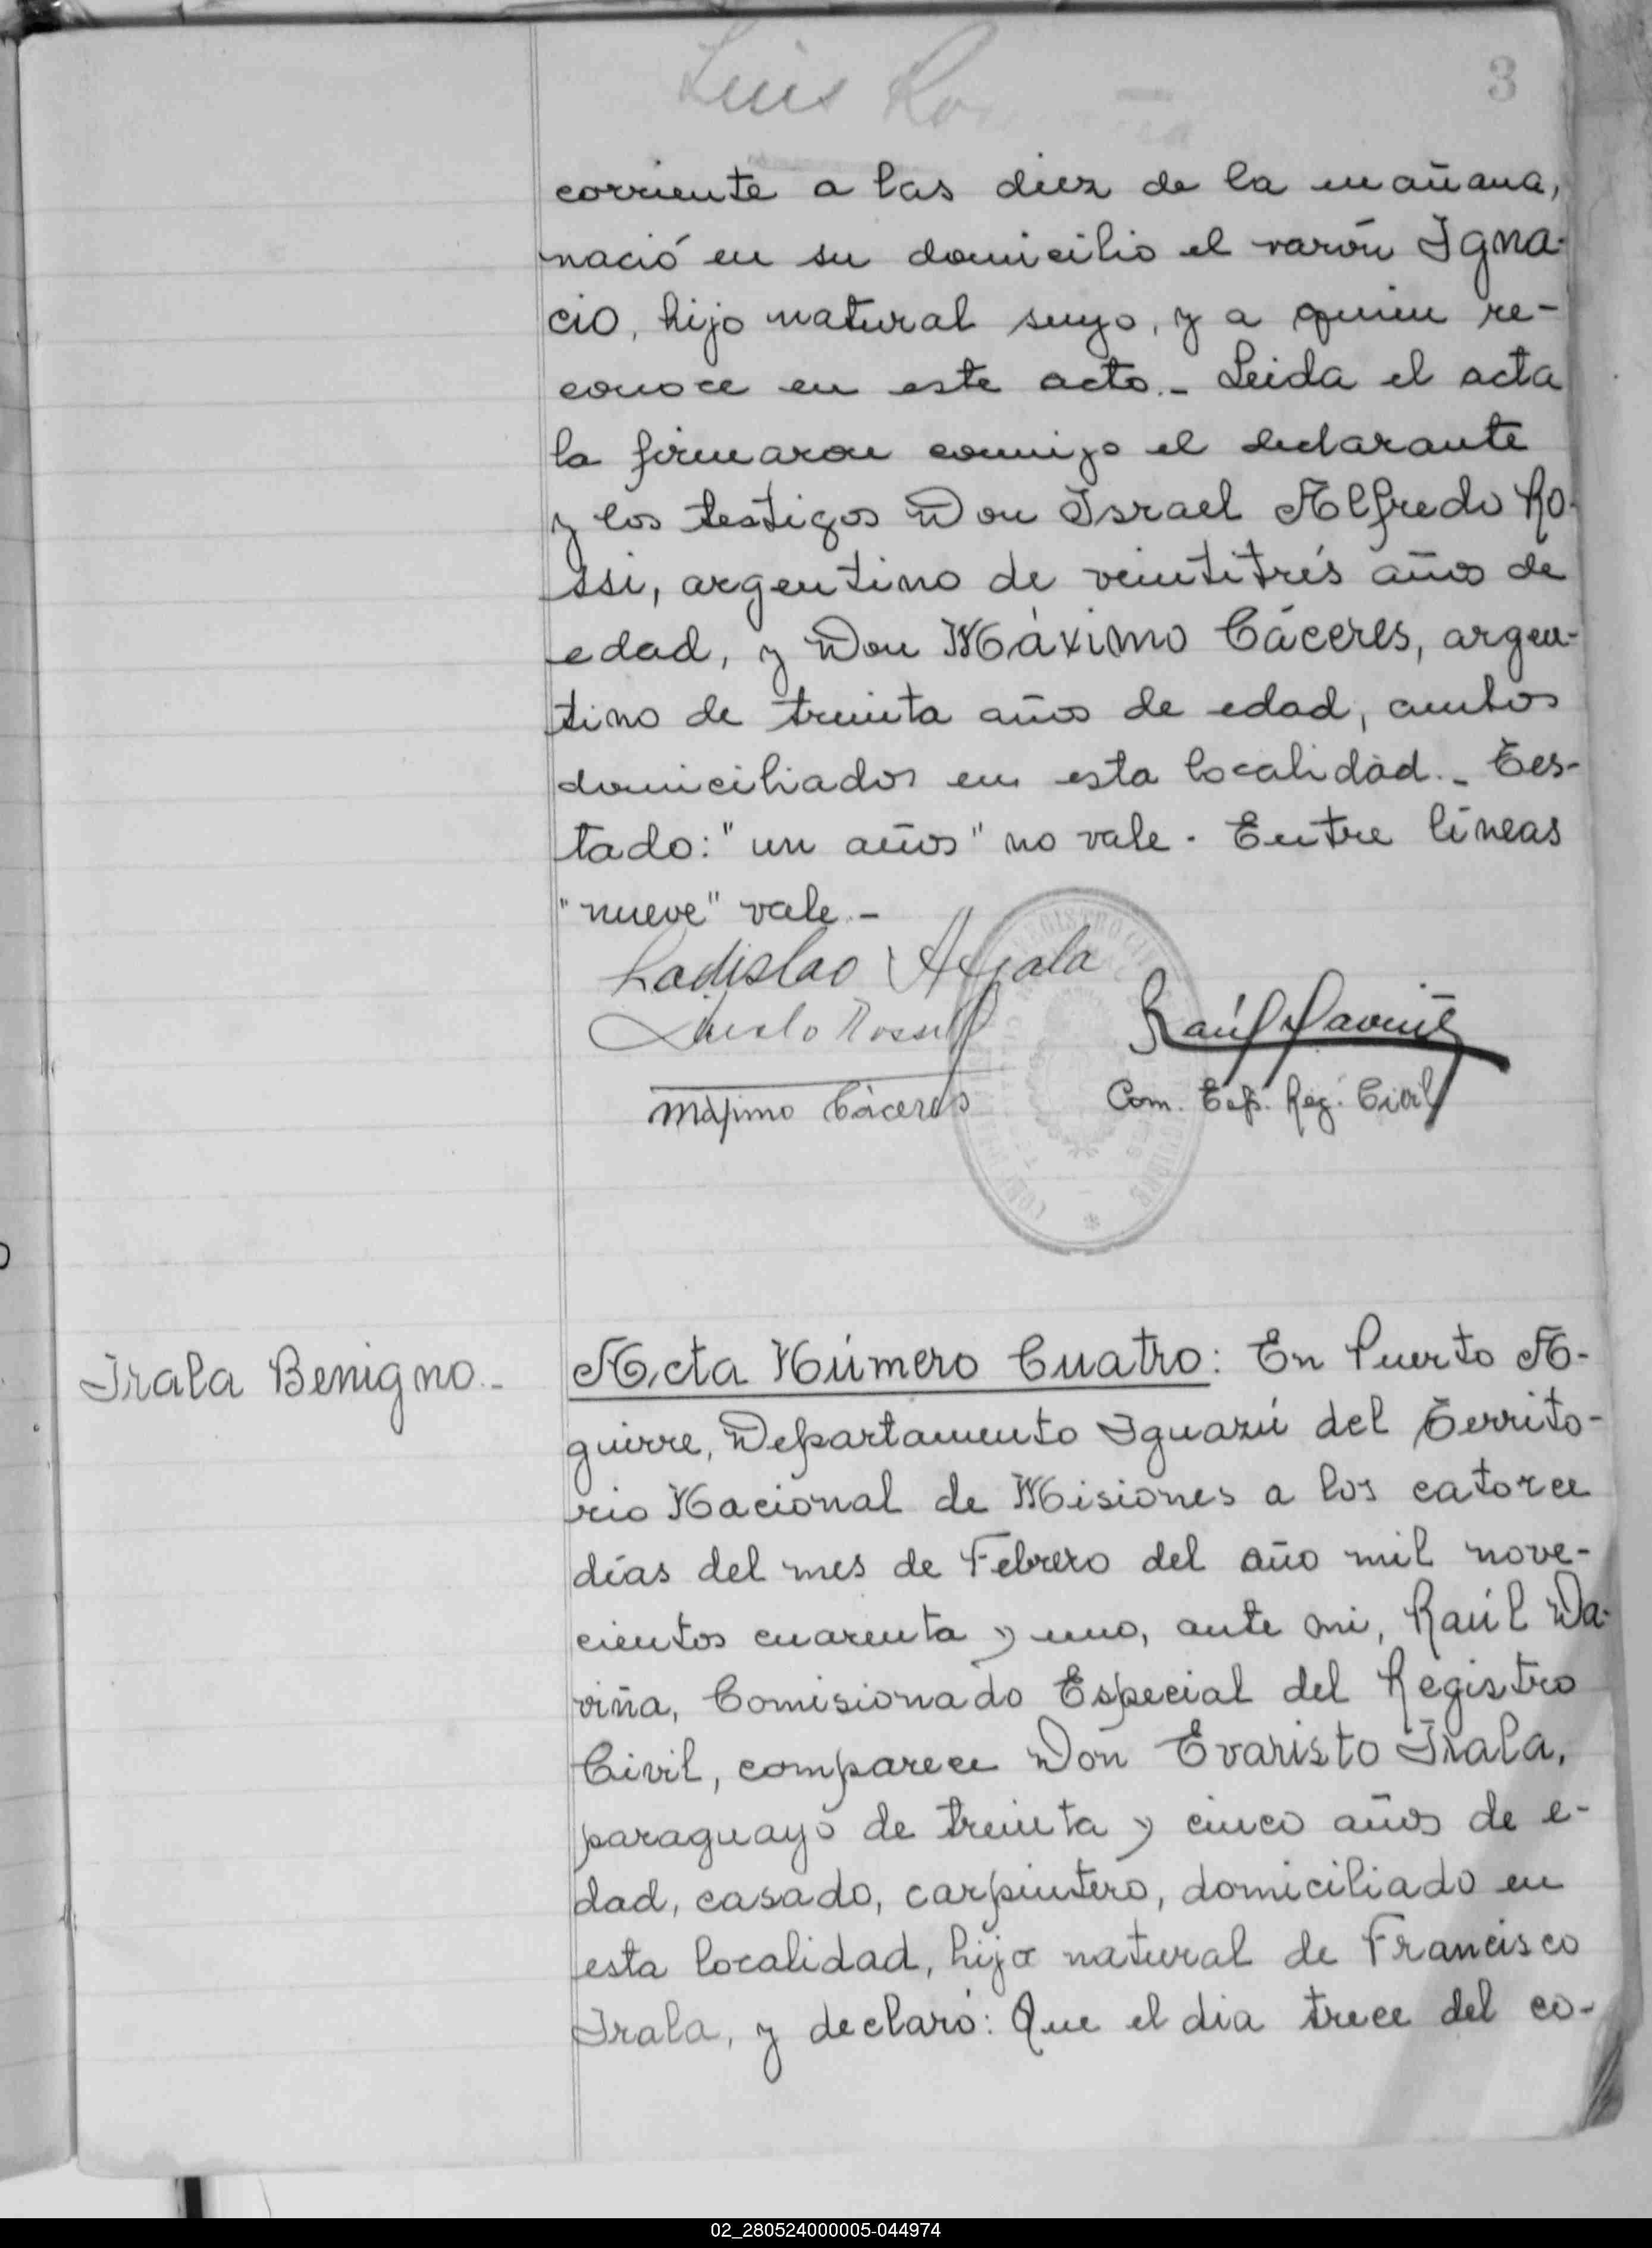 Luis
3
corriente a las diez de la mañana,
nació en su domicilio el varón Igna-
cio, hijo natural suyo, y a quien re-
conoce en este acto.- Leida el acta
la firmaron conmigo el declarante
y los testigos Don Israel Alfredo Ro-
ssi, argentino de veintitrés años de
edad, y Don Máximo Cáceres, argen-
tino de treinta años de edad, ambos
domiciliados en esta localidad.- Tes-
tado: "un años" no vale. Entre líneas
"nueve" vale.-
Ladislao Ayala
Raúl Daviña
Máximo Cáceres
Com. Esp. Reg. Civil
REGISTRO CIVIL
Irala Benigno.-
Acta Número Cuatro: En Puerto A-
guirre, Departamento Iguazú del Territo-
rio Nacional de Misiones a los catorce
días del mes de Febrero del año mil nove-
cientos cuarenta y uno, ante mi, Raúl Da-
viña, Comisionado Especial del Registro
Civil, comparece Don Evaristo Irala,
paraguayo de treinta y cinco años de e-
dad, casado, carpintero, domiciliado en
esta localidad, hijo natural de Francisco
Irala, y declaró: Que el dia trece del co-
02_280524000005-044974